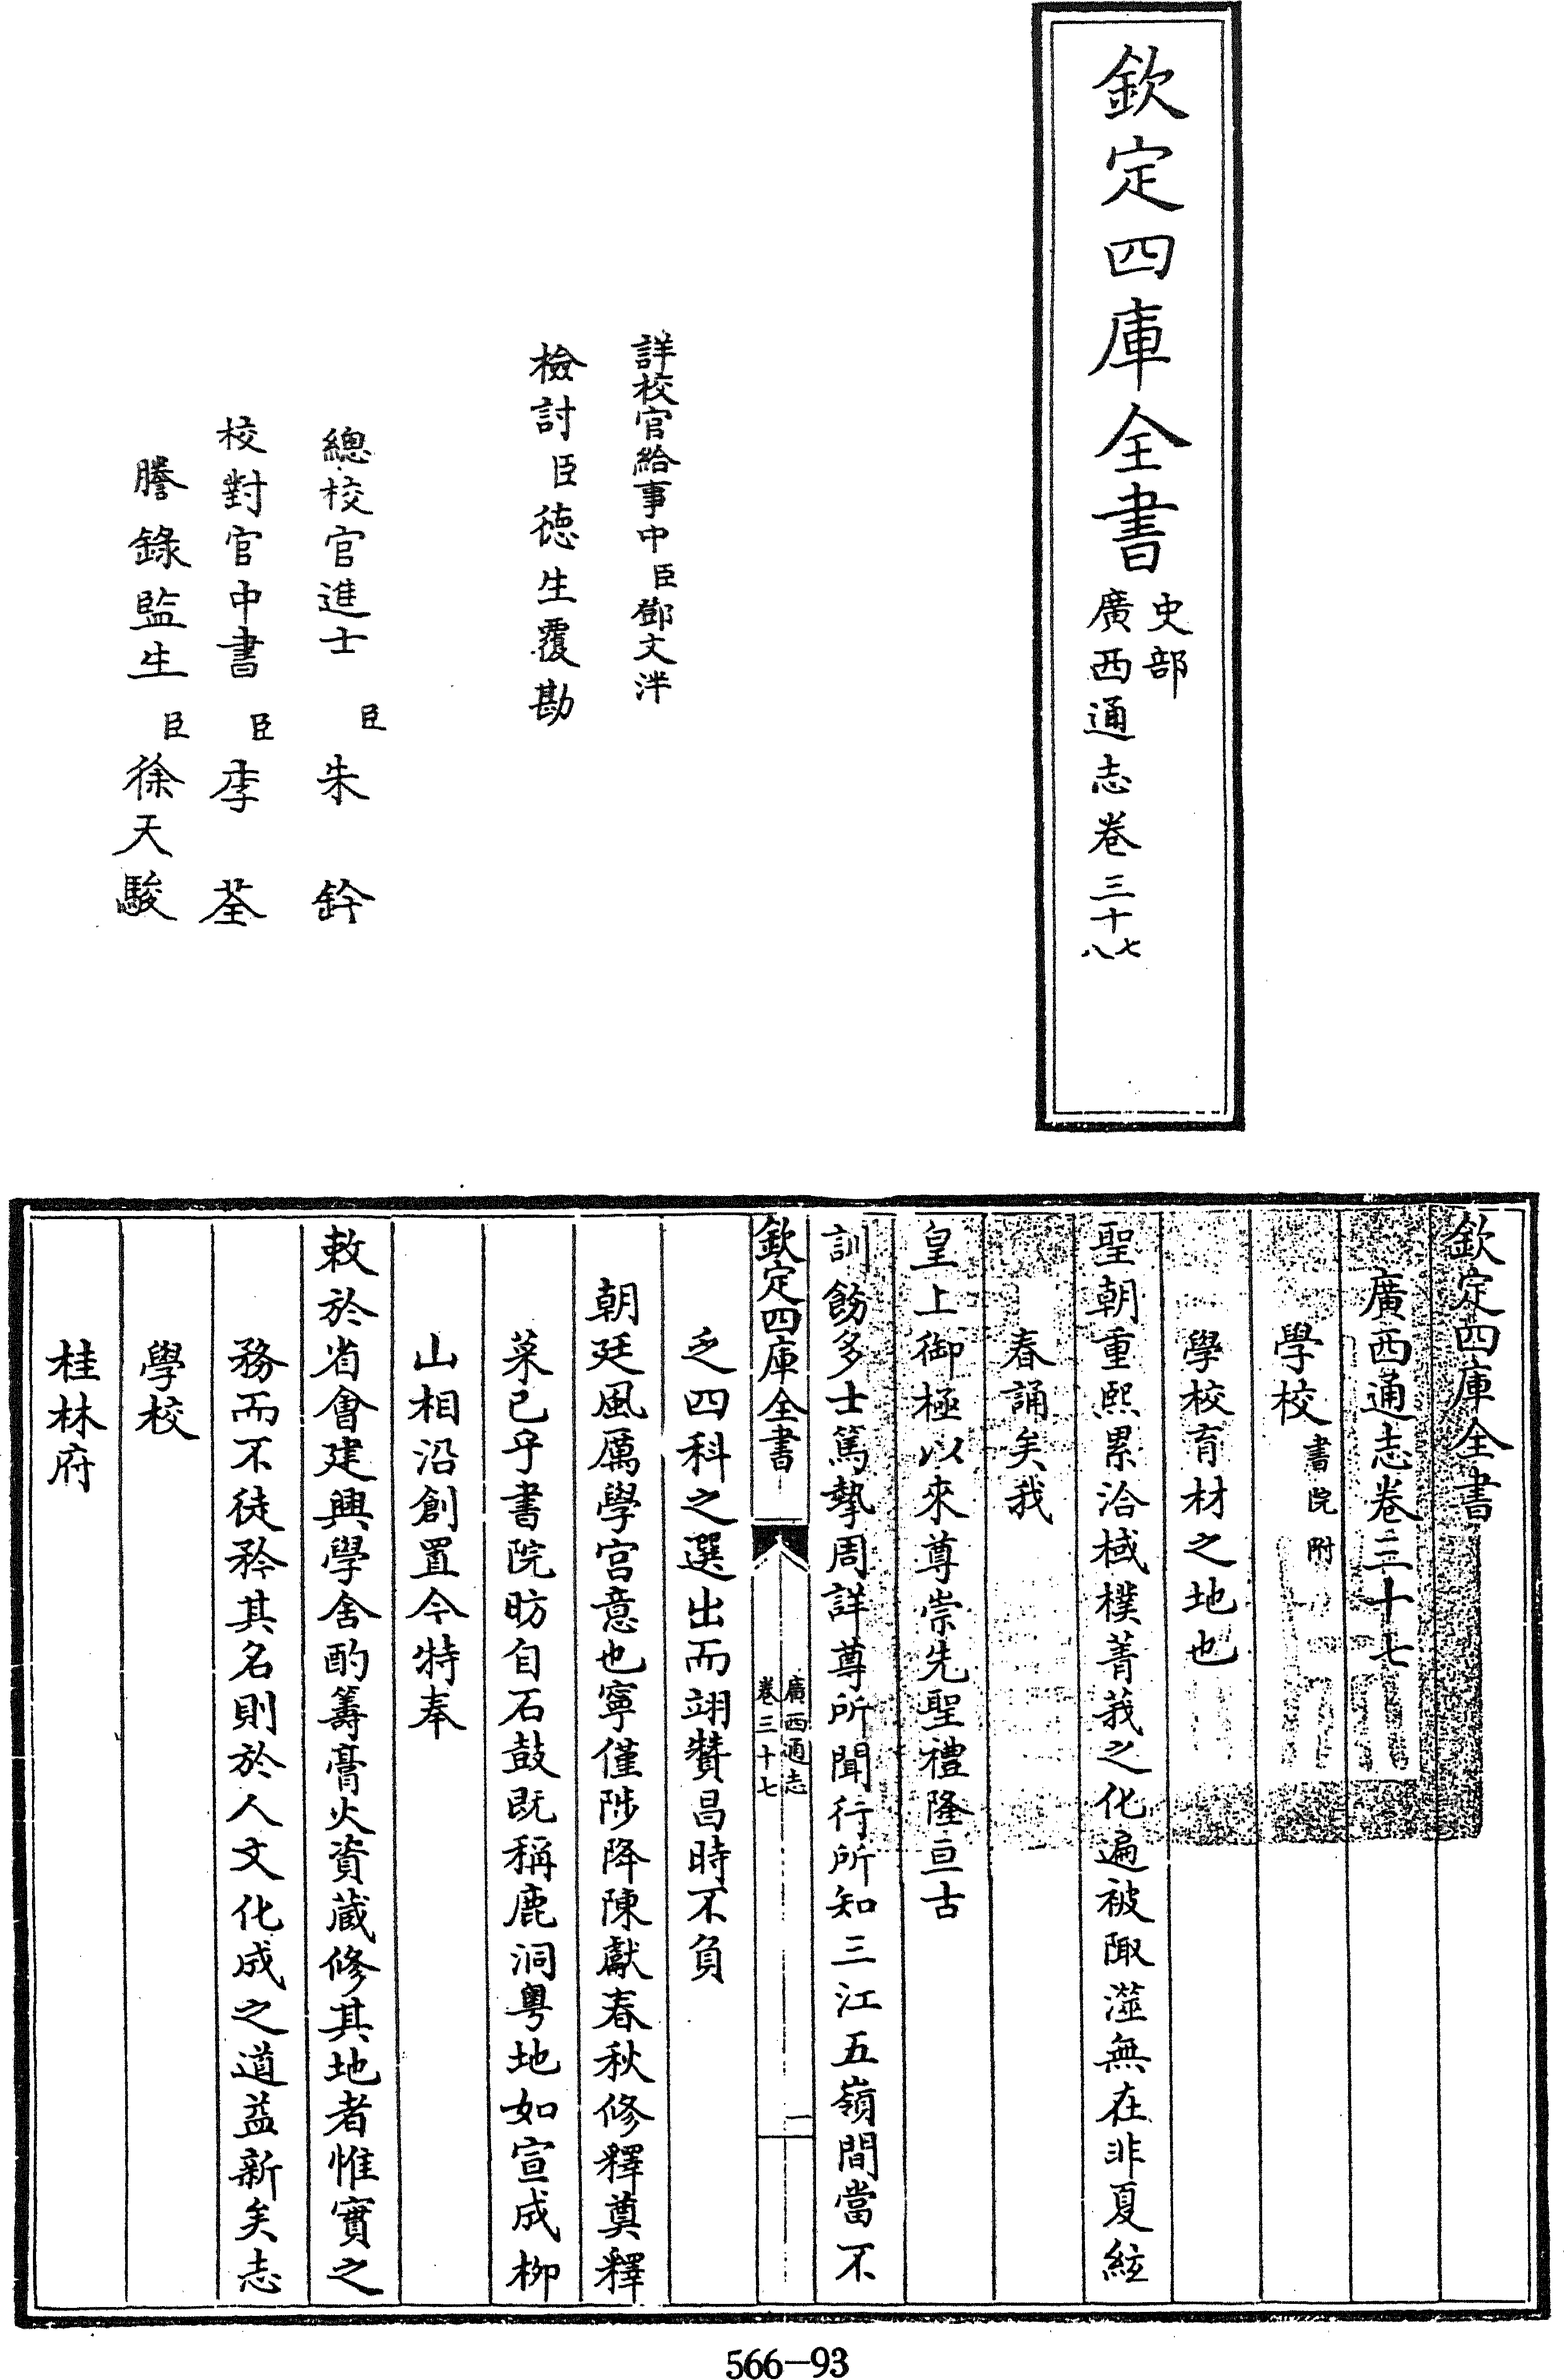 欽定四庫全書
史部
廣西通志卷三十七
八
詳校官給事中臣鄧文泮
檢討臣德生覆勘
總校官進士臣朱鈐
校對官中書臣李荃
謄錄監生臣徐天駿
欽定四庫全書
廣西通志卷三十七
學校書院附
學校育材之地也
聖朝重熙累洽棫樸菁莪之化遍被陬澨無在非夏絃
春誦矣我
皇上御極以來尊崇先聖禮隆亘古
訓飭多士篤摯周詳尊所聞行所知三江五嶺間當不
欽定四庫全書
廣西通志
卷三十七
一
乏四科之選出而翊贊昌時不負
朝廷風厲學宮意也寧僅陟降陳獻春秋修釋奠釋
菜已乎書院昉自石鼓既稱鹿洞粵地如宣成柳
山相沿創置今特奉
敕於省會建興學舍酌籌膏火資蔵修其地者惟實之
務而不徒矜其名則於人文化成之道益新矣志
學校
桂林府
566-93